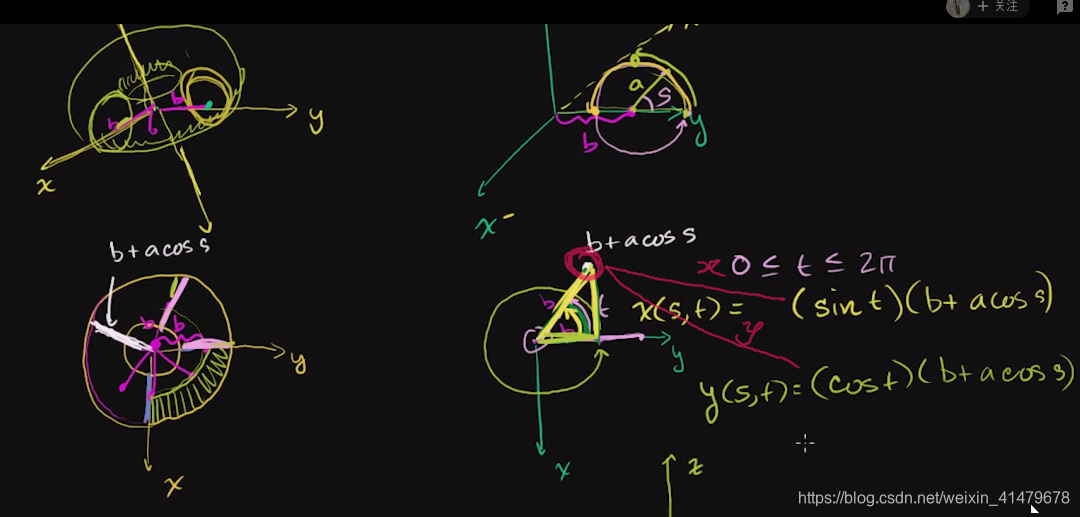 + 关注
?
y
b
b
b
x
a
s
y
b
x
b+a cos s
b
b
y
x
b+a cos s
x 0 ≤ t ≤ 2π
b
t
x(s,t) = (sin t)(b+a cos s)
b
y
y
y(s,t)=(cos t)(b+a cos s)
x
z
https://blog.csdn.net/weixin_41479678